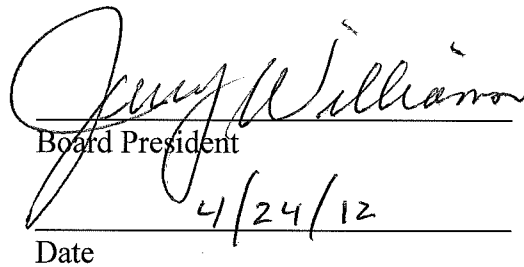 Jerry Williamson
Board President
4/24/12
Date